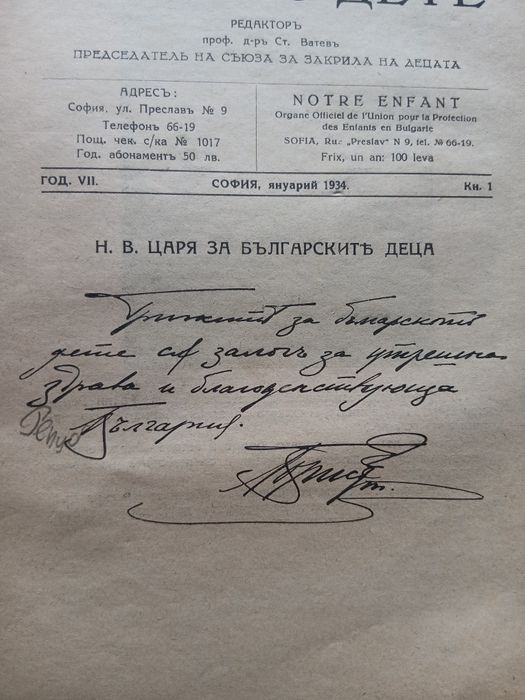 ДЕТЕ
РЕДАКТОРЪ
проф. д-ръ Ст. Ватевъ
ПРЕДСЕДАТЕЛЬ НА СЪЮЗА ЗА ЗАКРИЛА НА ДЕЦАТА
АДРЕСЪ:
София, ул. Преславъ № 9
Телефонъ 66-19
Пощ. чек. с/ка № 1017
Год. абонаментъ 50 лв.
NOTRE ENFANT
Organe Officiel de l'Union pour la Protection
des Enfants en Bulgarie
SOFIA, Ru: „Preslav" N 9, tel. № 66-19.
Frix, un an: 100 leva
ГОД. VII. СОФИЯ, януарий 1934. Кн. 1
Н. В. ЦАРЯ ЗА БЪЛГАРСКИТѢ ДЕЦА
Грижитѣ за българското
дете сѫ залогъ за утрешна
здрава и благоденствующа
България.